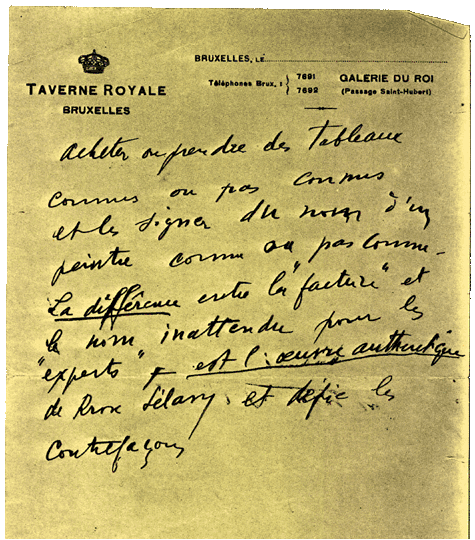 BRUXELLES, LE
TAVERNE ROYALE
BRUXELLES
Téléphones Brux. : 7691
7692
GALERIE DU ROI
(Passage Saint-Hubert)
Acheter ou prendre des Tableaux
connus ou pas connus
et les signer du nom d'un
peintre connu ou pas connu –
La différence entre la "facture" et
le nom inattendu pour les
"experts" – est l'œuvre authentique
de Rrose Sélavy, et défie les
contrefaçons